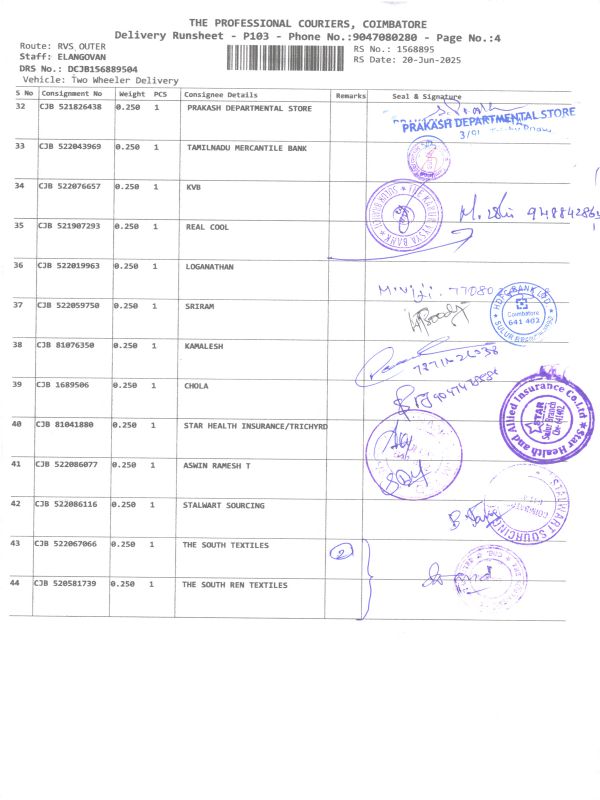 THE PROFESSIONAL COURIERS, COIMBATORE
Delivery Runsheet - P103 - Phone No.:9047080280 - Page No.:4
Route: RVS OUTER
RS No.: 1568895
Staff: ELANGOVAN
RS Date: 20-Jun-2025
DRS No.: DCJB156889504
Vehicle: Two Wheeler Delivery
S No Consignment No Weight PCS Consignee Details Remarks Seal & Signature
32 CJB 521826438 0.250 1 PRAKASH DEPARTMENTAL STORE
PRAKASH DEPARTMENTAL STORE
33 CJB 522043969 0.250 1 TAMILNADU MERCANTILE BANK
34 CJB 522076657 0.250 1 KVB
THE KARUR VYSYA BANK
35 CJB 521907293 0.250 1 REAL COOL
36 CJB 522019963 0.250 1 LOGANATHAN
37 CJB 522059750 0.250 1 SRIRAM
HDFC BANK LTD
Coimbatore
641 402
38 CJB 81076350 0.250 1 KAMALESH
39 CJB 1689506 0.250 1 CHOLA
Star Health and Allied Insurance Co.Ltd
STAR
Sulur Branch
40 CJB 81041880 0.250 1 STAR HEALTH INSURANCE/TRICHYRD
41 CJB 522086077 0.250 1 ASWIN RAMESH T
42 CJB 522086116 0.250 1 STALWART SOURCING
STALWART SOURCING
43 CJB 522067066 0.250 1 THE SOUTH TEXTILES 2
44 CJB 520581739 0.250 1 THE SOUTH REN TEXTILES